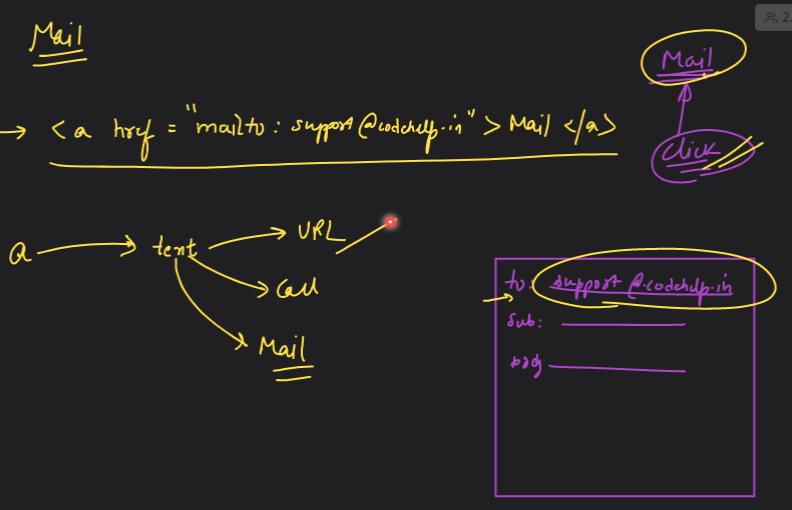 Mail
Mail
<a href = "mailto: support@codehelp.in" > Mail </a>
click
a
text
URL
Call
Mail
to: support@codehelp.in
sub:
body
2.